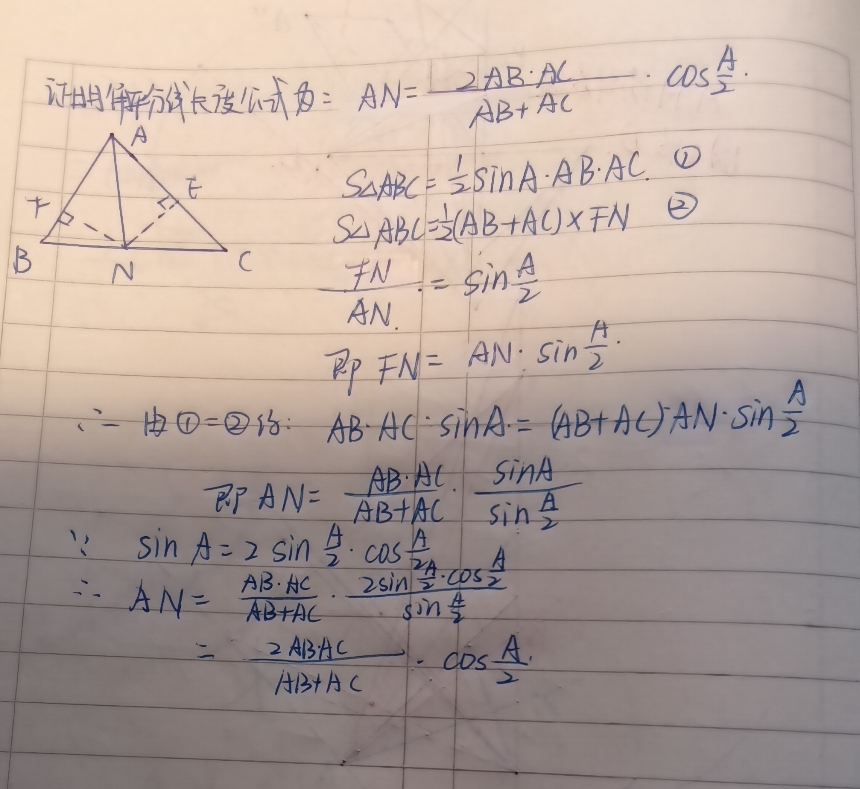 证明角平分线长度公式为: AN = 2AB·AC / AB+AC · cos A/2.
A
E
F
B
N
C
S△ABC = 1/2 sinA·AB·AC. ①
S△ABC = 1/2 (AB+AC)×FN ②
FN / AN. = sin A/2
即 FN = AN· sin A/2.
∴ 由①=②得: AB·AC·sinA = (AB+AC)·AN·sin A/2
即 AN = AB·AC / AB+AC · sinA / sin A/2
∵ sin A = 2 sin A/2 · cos A/2
∴ AN = AB·AC / AB+AC · 2sin A/2 · cos A/2 / sin A/2
= 2AB·AC / AB+AC · cos A/2.